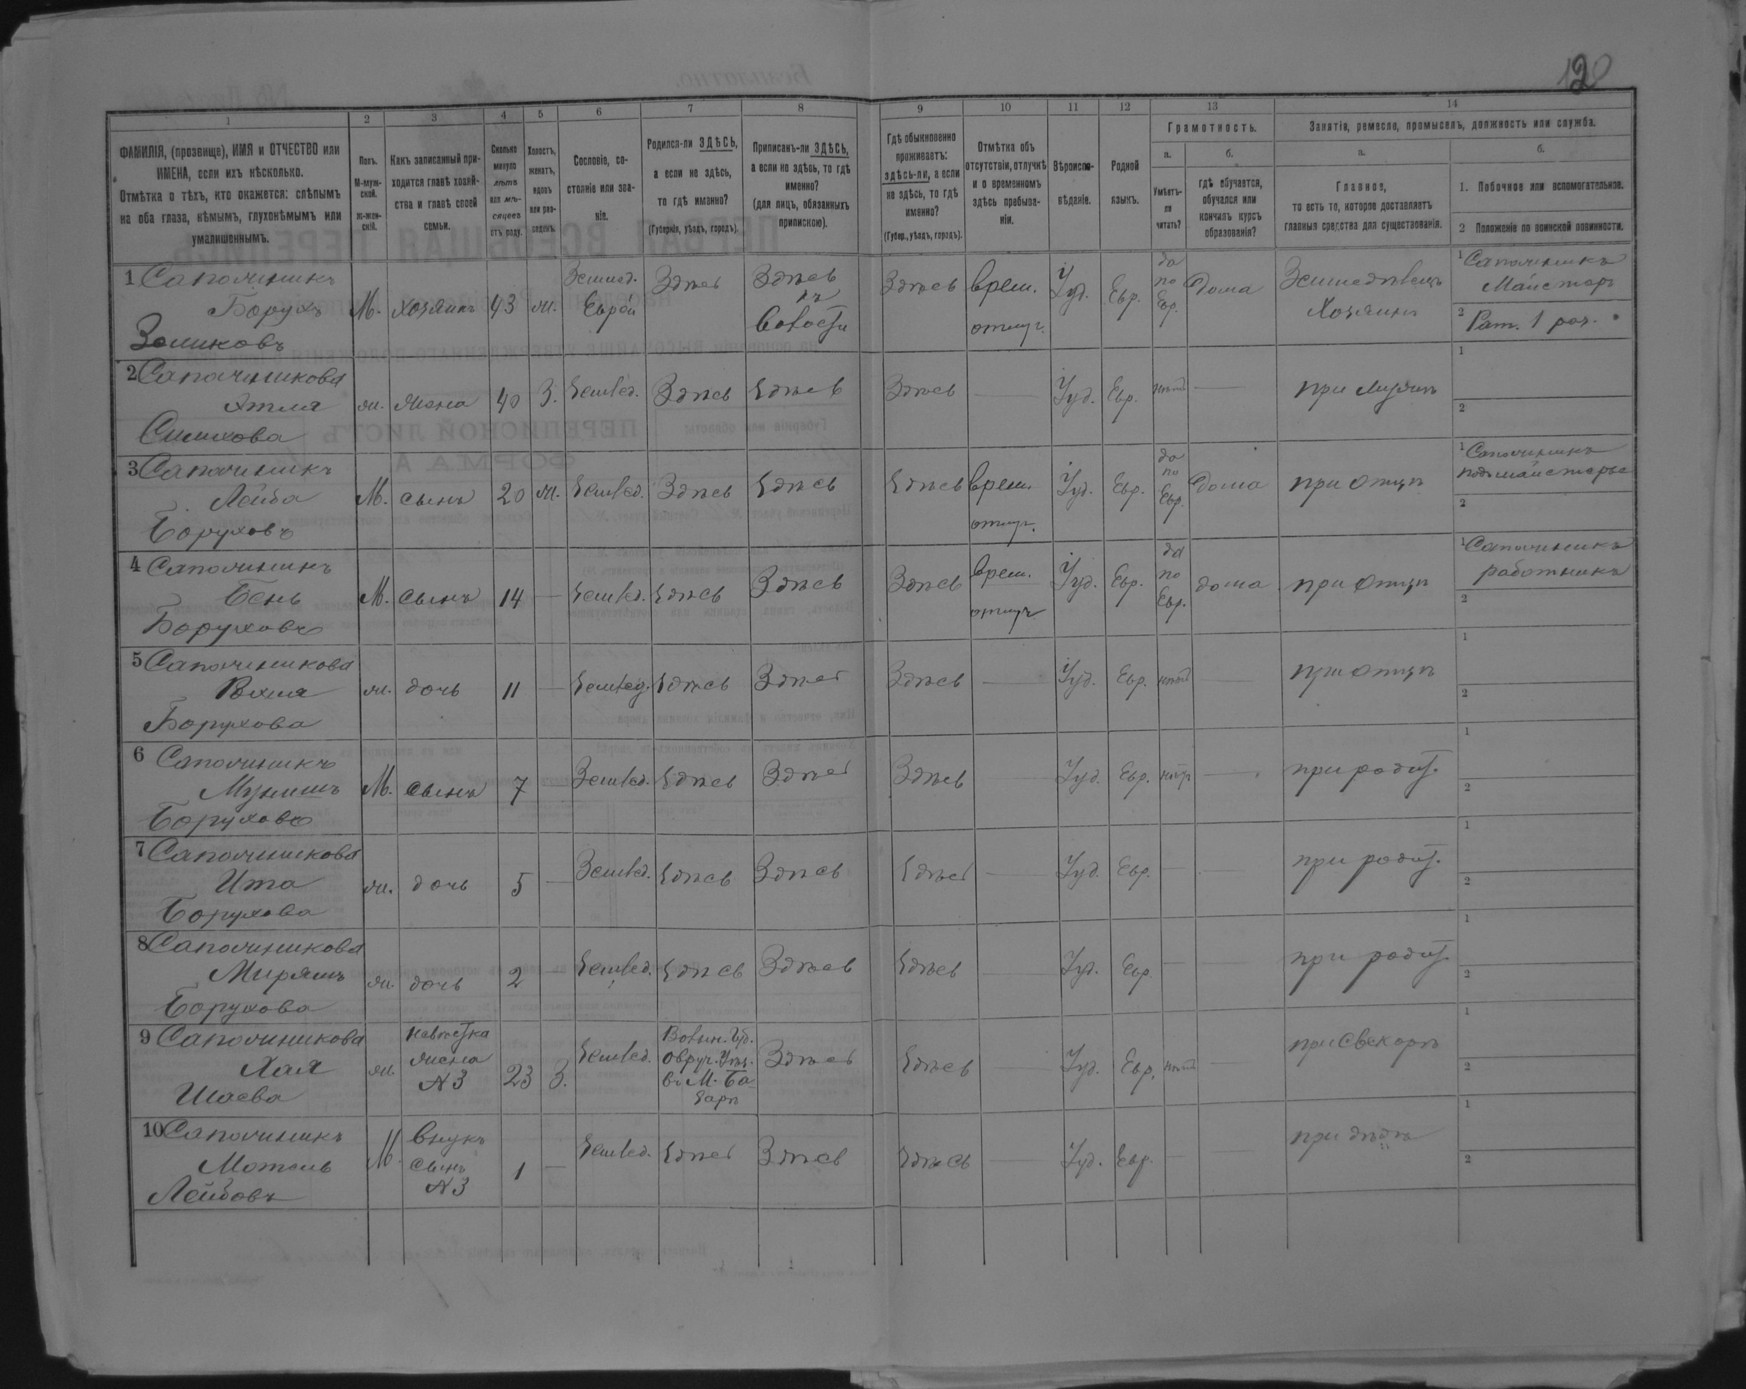 120
1 2 3 4 5 6 7 8 9 10 11 12 13 14
ФАМИЛІЯ, (прозвище), ИМЯ и ОТЧЕСТВО или
ИМЕНА, если ихъ нѣсколько.
Отмѣтка о тѣхъ, кто окажется: слѣпымъ
на оба глаза, нѣмымъ, глухонѣмымъ или
умалишеннымъ.
Полъ.
М-муж-
ской.
ж-жен-
скій.
Какъ записанный при-
ходится главѣ хозяй-
ства и главѣ своей
семьи.
Сколько
минуло
лѣтъ
или мѣ-
сяцевъ
отъ роду.
Холостъ,
женатъ,
вдовъ
или раз-
веденъ.
Сословіе, со-
стояніе или зва-
ніе.
Родился-ли ЗДѢСЬ,
а если не здѣсь,
то гдѣ именно?
(Губернія, уѣздъ, городъ).
Приписанъ-ли ЗДѢСЬ,
а если не здѣсь, то гдѣ
именно?
(для лицъ, обязанныхъ
припискою).
Гдѣ обыкновенно
проживаетъ:
здѣсь-ли, а если
не здѣсь, то гдѣ
именно?
(Губер., уѣздъ, городъ).
Отмѣтка объ
отсутствіи, отлучкѣ
и о временномъ
здѣсь пребыва-
ніи.
Вѣроиспо-
вѣданіе.
Родной
языкъ.
Грамотность.
а.
Умѣетъ-
ли
читать?
б.
гдѣ обучается,
обучался или
кончилъ курсъ
образованія?
Занятія, ремесло, промыселъ, должность или служба.
а.
Главное,
то есть то, которое доставляетъ
главныя средства для существованія.
б.
1. Побочное или вспомогательное.
2 Положеніе по воинской повинности.
1 Сапожникъ Борухъ М. хозяинъ 43 ж. Земшед. Еврей Здѣсь Здѣсь Здѣсь врем. отлуч. Іуд. Евр. да по Евр. Дома Хозяинъ
1 Сапожникъ Майстеръ
2 Рат. 1 раз.
2 Сапожникова Симхова ж. жена 40 З. Земвед. Здѣсь Здѣсь Здѣсь — Іуд. Евр. нѣтъ — при мужѣ
1
2
3 Сапожникъ Лейба Борухов М. сынъ 20 ж. Земвед. Здѣсь Здѣсь Здѣсь врем. отлуч. Іуд. Евр. да по Евр. Дома при отцѣ
1 Сапожникъ подмайстерье
2
4 Сапожникъ Бень Борухов М. сынъ 14 — Земвед. Здѣсь Здѣсь Здѣсь врем. отлуч Іуд. Евр. да по Евр. дома при отцѣ
1 Сапожникъ работникъ
2
5 Сапожникова Борухова ж. дочь 11 — Земвед. Здѣсь Здѣсь Здѣсь — Іуд. Евр. нѣтъ — при отцѣ
1
2
6 Сапожникъ Борухов М. сынъ 7 Земвед. Здѣсь Здѣсь Здѣсь — Іуд. Евр. нѣтъ — при родит.
1
2
7 Сапожникова Ита Борухова ж. дочь 5 — Земвед. Здѣсь Здѣсь Здѣсь — Іуд. Евр. — — при родит.
1
2
8 Сапожникова Мирямъ Борухова ж. дочь 2 — Земвед. Здѣсь Здѣсь Здѣсь — Іуд. Евр. — — при родит.
1
2
9 Сапожникова Хая Шаева ж. невѣстка жена №3 23 З. Земвед. Волын. Гб. Овруч. Уѣз. въ М. Базарѣ Здѣсь Здѣсь — Іуд. Евр. нѣтъ — при Свекорѣ
1
2
10 Сапожникъ Мотель Лейбовъ М. внукъ сынъ №3 1 — Земвед. Здѣсь Здѣсь Здѣсь — Іуд. Евр. — — при дѣдѣ
1
2